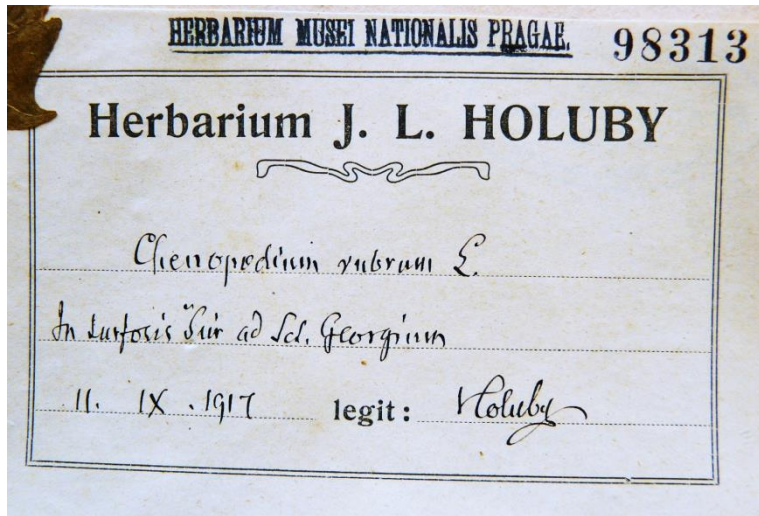 HERBARIUM MUSEI NATIONALIS PRAGAE. 98313
Herbarium J. L. HOLUBY
Chenopodium rubrum L.
In turfosis Šúr ad Sct. Georgium
11. IX. 1917 legit: Holuby